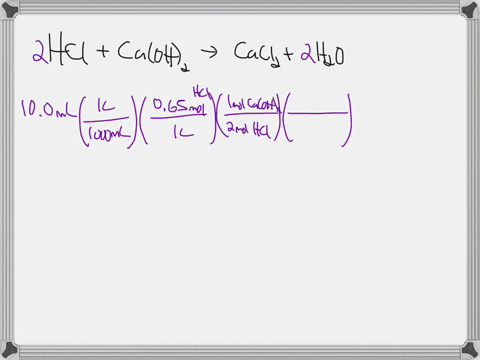 2HCl + Ca(OH)₂ → CaCl₂ + 2H₂O
10.0mL (1L/1000mL) (0.65mol HCl/1L) (1mol Ca(OH)₂/2mol HCl) (——)